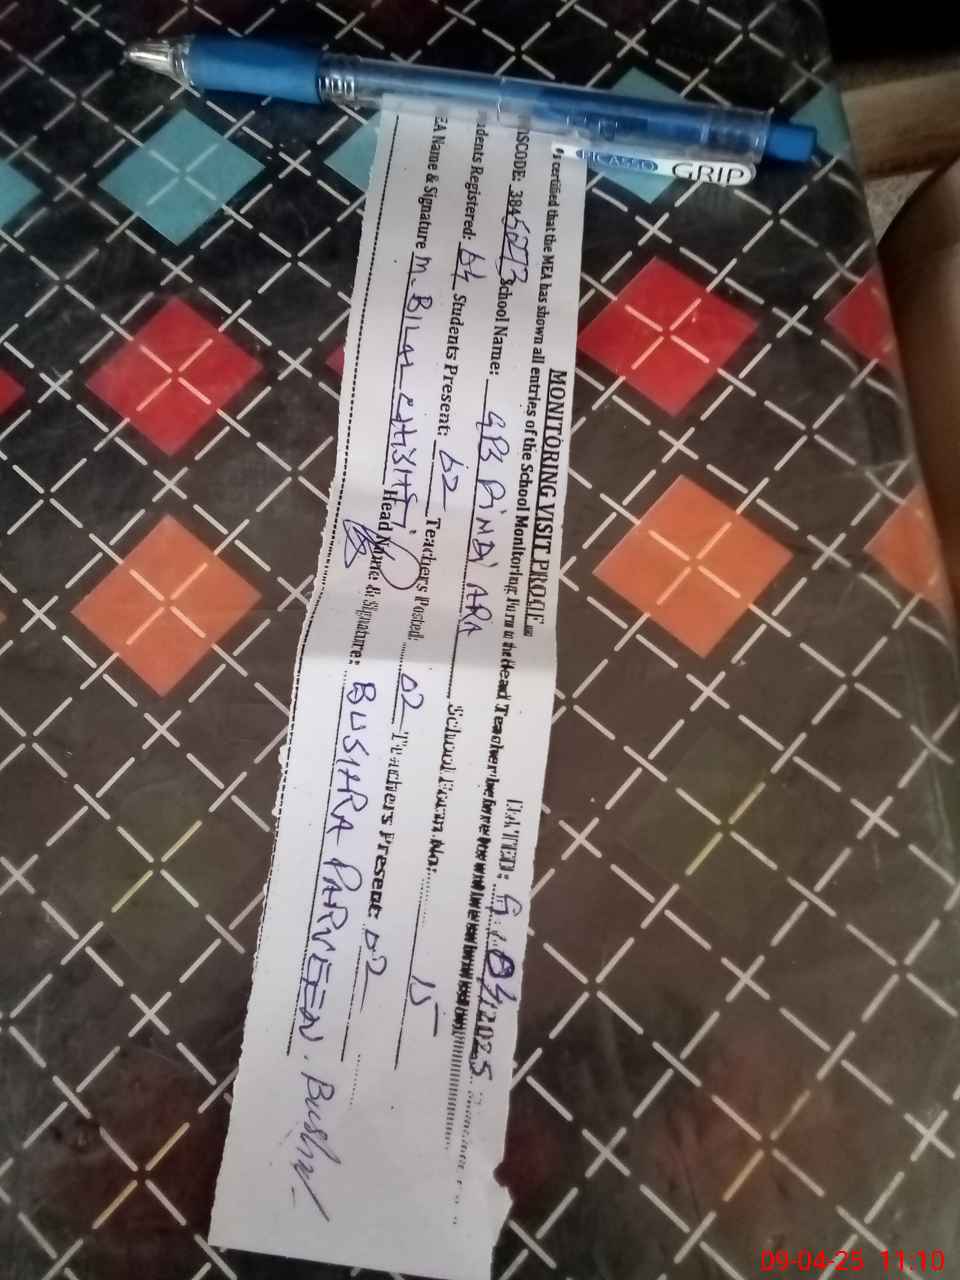 MONITORING VISIT PROOF
DATED: 9.04.2025
certified that the MEA has shown all entries of the School Monitoring Form to the Head Teacher before
ISCODE: 38450273 School Name: GPS PiNDi ARA School Form No: 15
dents Registered: 64 Students Present: 62 Teachers Posted: 02 Teachers Present: 02
EA Name & Signature M. BILAL Head Name & Signature: BUSHRA PARVEEN. Bushra
PICASSO GRIP
09-04-25 11.10